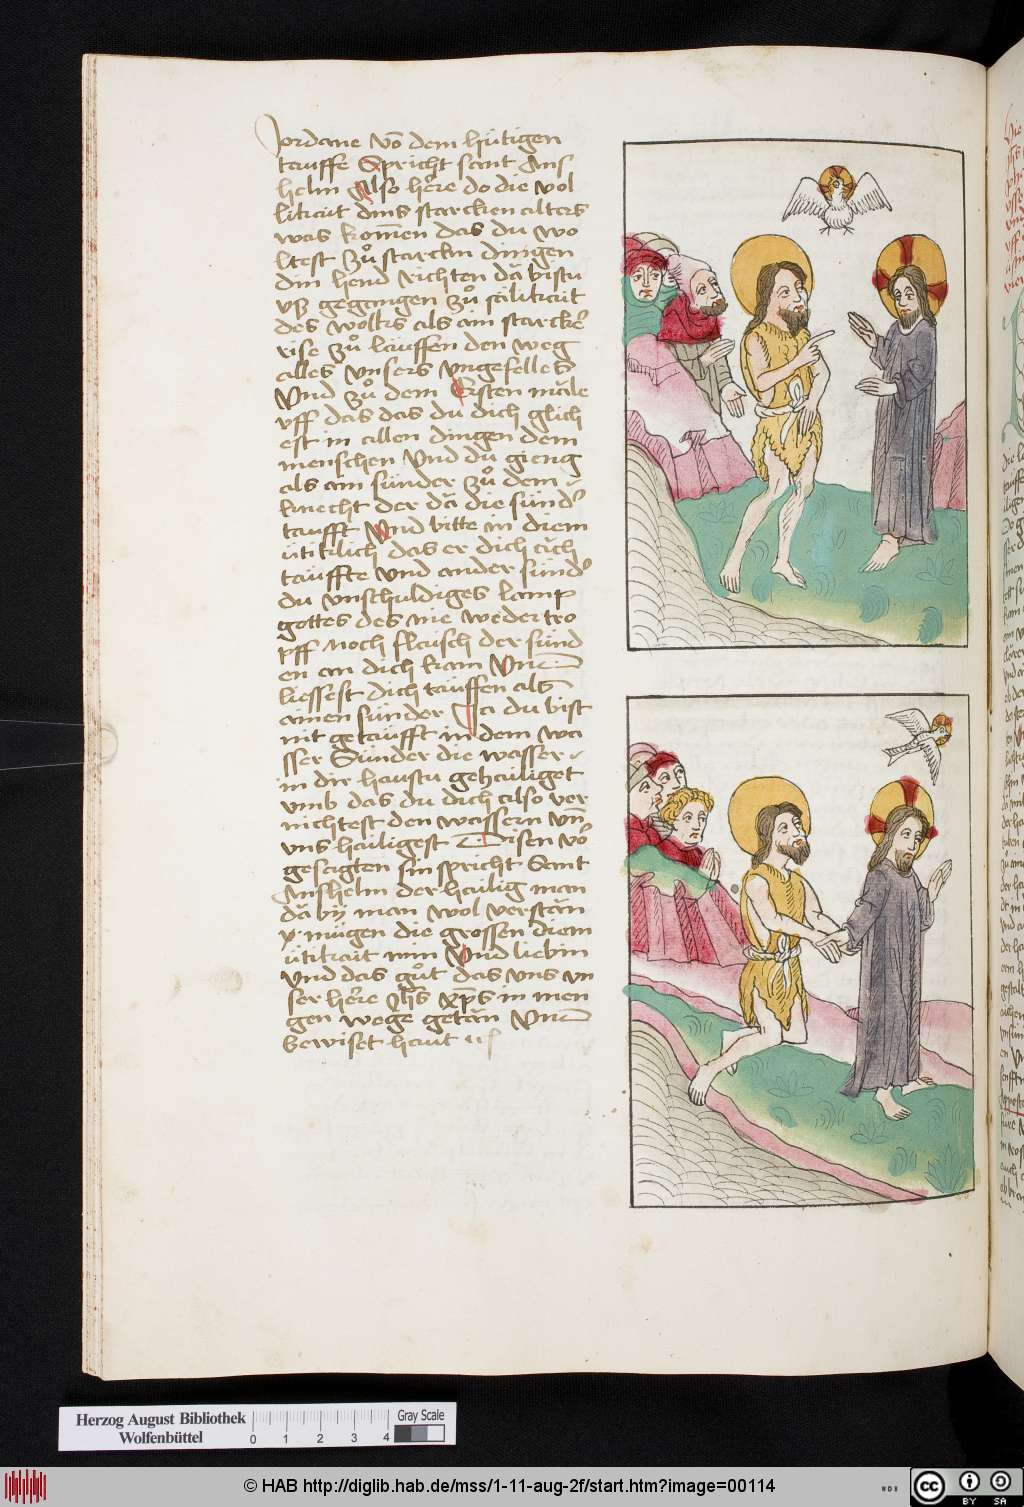 Jordane vō dem hütigen
tauffe Spricht sant Ans
helm also here do die vol
litkait dins starcken alters
was komen das du wo
ltest zů starckin dingen
din hend richten dā bistu
vß gegangen zů sälikait
des wolks als ain starcker
rise zů läuffen den weg
alles vnsers vngefelles
Und zů dem Ersten māle
vff das das du dich glich
est in allen dingen dem
menschen Und du gieng
als ain sünder zů dem
knecht der dā die sünd
taufft Und bitte in diem
ütiklich das er dich āch
tauffte vnd ander sünd
du vnschuldiges lamp
gottes des nie weder tro
pff noch flaisch der sünd
en an dich kam Und
liessest dich tauffen als
ainen sünder Ja du bist
nit getaufft in dem wa
sser Sünder die wasser
in dir haustu gehailiget
vmb das du dich also ver
nichtest den wassern vnd
vns hailigest Disen vor
gesagten sin spricht Sant
Anshelm der hailig man
dā by man wol verstān
mügen die grossen diem
ütikait min Und liebin
vnd das gůt das vns vn
ser here jhs xps in men
gen wege getān Und
bewiset haut
Herzog August Bibliothek
Wolfenbüttel
0 1 2 3 4
Gray Scale
© HAB http://diglib.hab.de/mss/1-11-aug-2f/start.htm?image=00114
WDB
cc BY SA